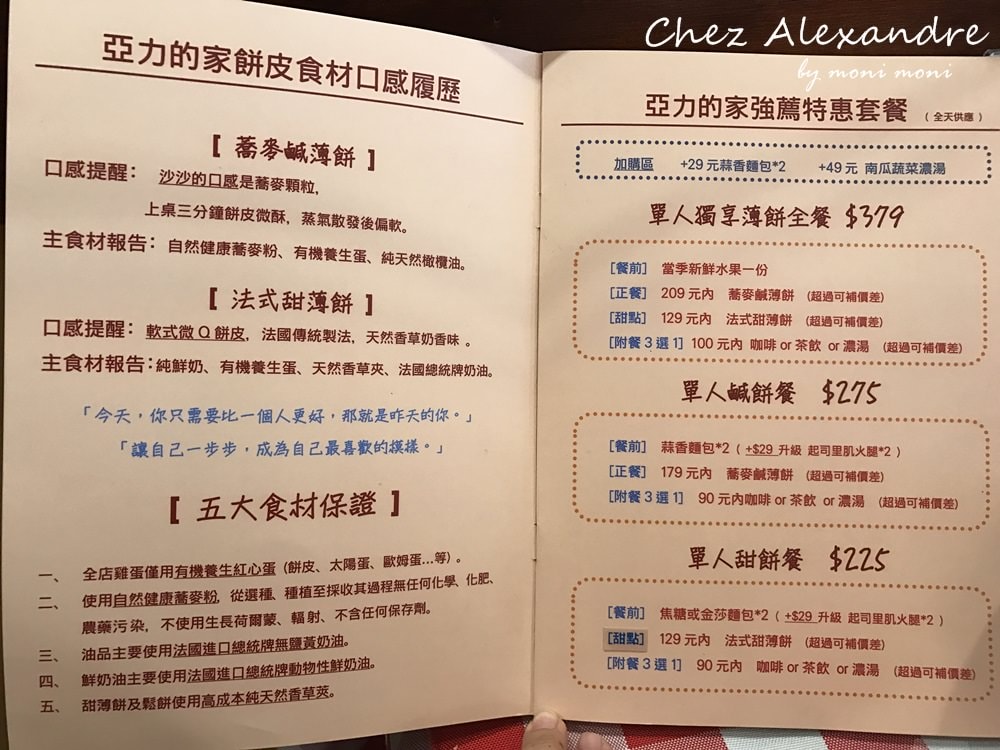 Chez Alexandre
by moni moni
亞力的家餅皮食材口感履歷
[ 蕎麥鹹薄餅 ]
口感提醒： 沙沙的口感是蕎麥顆粒，
上桌三分鐘餅皮微酥，蒸氣散發後偏軟。
主食材報告：自然健康蕎麥粉、有機養生蛋、純天然橄欖油。
[ 法式甜薄餅 ]
口感提醒： 軟式微Q餅皮，法國傳統製法，天然香草奶香味 。
主食材報告：純鮮奶、有機養生蛋、天然香草夾、法國總統牌奶油。
「今天，你只需要比一個人更好，那就是昨天的你。」
「讓自己一步步，成為自己最喜歡的模樣。」
[ 五大食材保證 ]
一、 全店雞蛋僅用有機養生紅心蛋 (餅皮、太陽蛋、歐姆蛋...等) 。
二、 使用自然健康蕎麥粉，從選種、種植至採收其過程無任何化學、化肥、
農藥污染，不使用生長荷爾蒙、輻射、不含任何保存劑。
三、 油品主要使用法國進口總統牌無鹽黃奶油。
四、 鮮奶油主要使用法國進口總統牌動物性鮮奶油。
五、 甜薄餅及鬆餅使用高成本純天然香草莢。
亞力的家強薦特惠套餐 （全天供應）
加購區 +29 元蒜香麵包*2 +49元 南瓜蔬菜濃湯
單人獨享薄餅全餐 $379
[餐前] 當季新鮮水果一份
[正餐] 209 元內 蕎麥鹹薄餅 (超過可補價差)
[甜點] 129 元內 法式甜薄餅 (超過可補價差)
[附餐 3 選 1] 100 元內 咖啡 or 茶飲 or 濃湯 (超過可補價差)
單人鹹餅餐 $275
[餐前] 蒜香麵包*2 ( +$29 升級 起司里肌火腿*2 )
[正餐] 179 元內 蕎麥鹹薄餅 (超過可補價差)
[附餐 3 選 1] 90 元內咖啡 or 茶飲 or 濃湯 (超過可補價差)
單人甜餅餐 $225
[餐前] 焦糖或金莎麵包*2 ( +$29 升級 起司里肌火腿*2 )
[甜點] 129 元內 法式甜薄餅 (超過可補價差)
[附餐 3 選 1] 90 元內 咖啡 or 茶飲 or 濃湯 (超過可補價差)